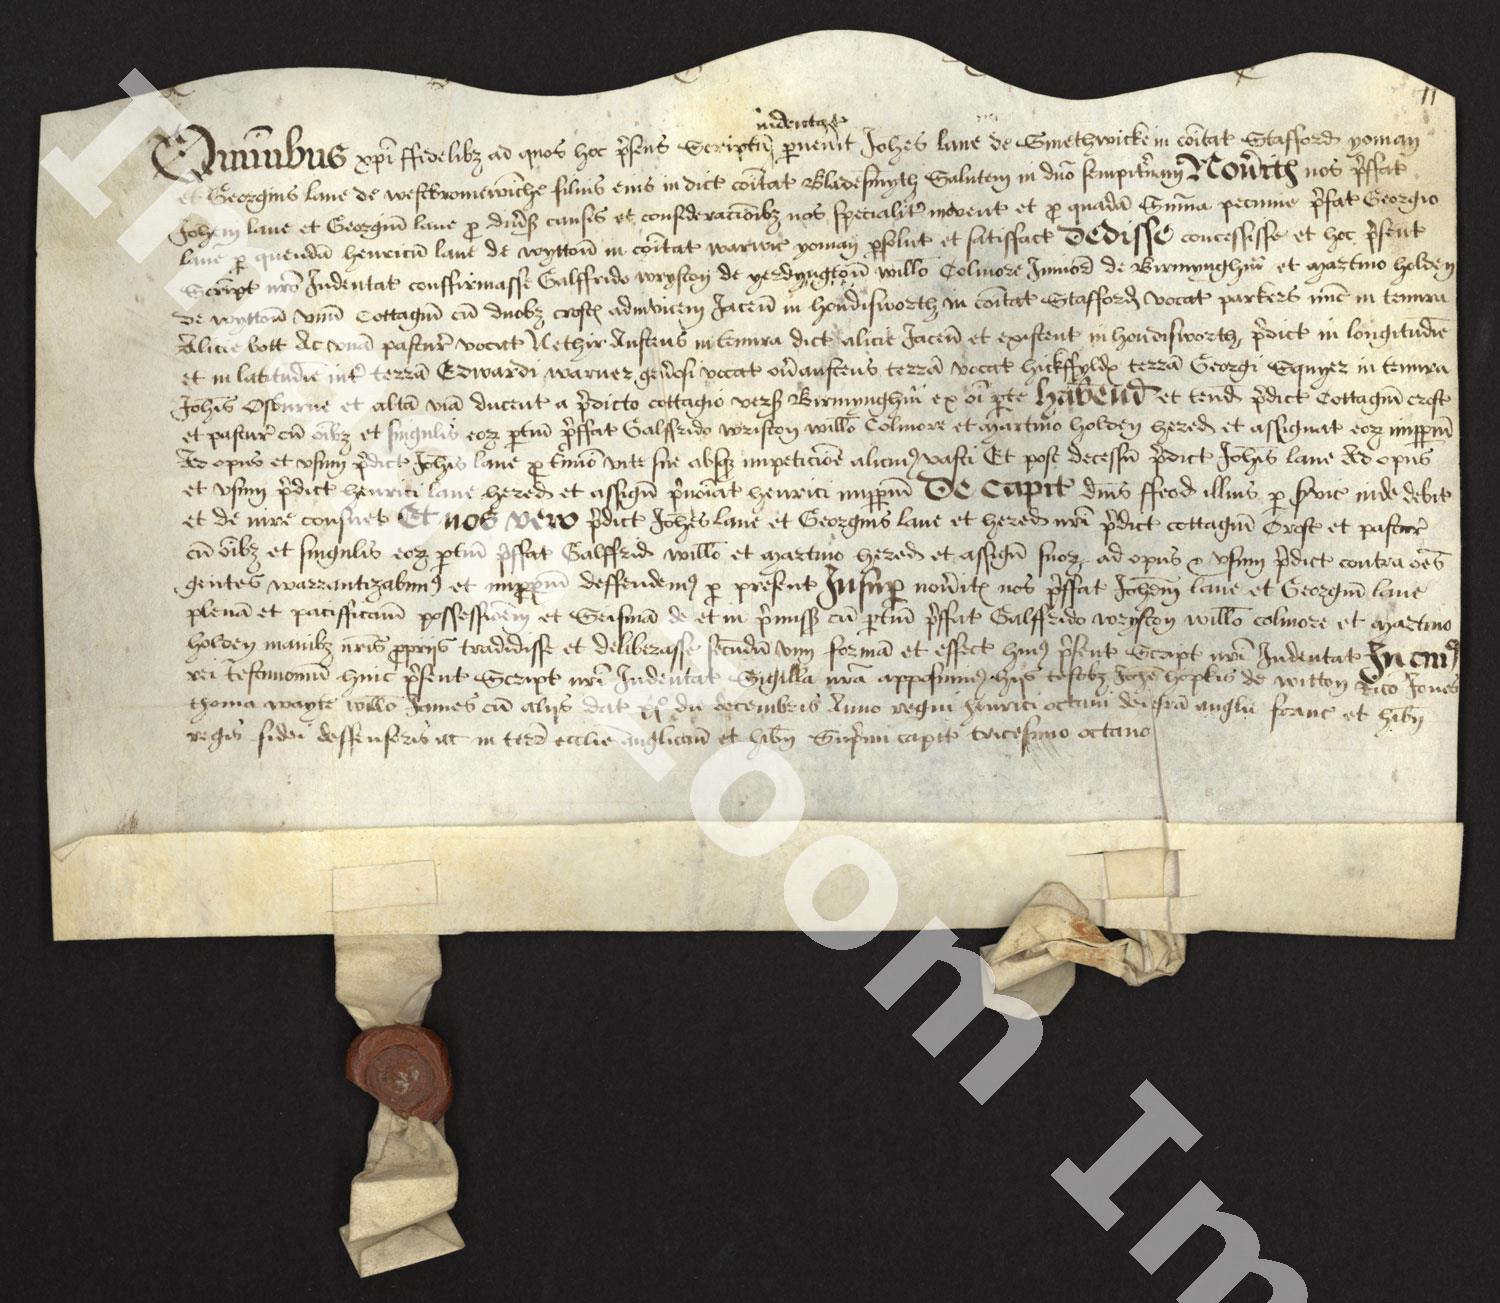 11
indentat
Omnibus xpi ffidelibz ad quos hoc p̄sens Scriptū pvenit Johēs lane de Smethwicke in cōitat Stafford yoman
et Georgius lane de westbromewiche filius eius in dict cōitat Bladesmyth Salutem in dn̄o sempit̄nam Nov̄itis nos p̄ffat
Johēm lane et Georgiū lane p div̄s causis et consideracōibz nos specialit̄ movent et p quadā Sum̄a pecunie p̄ffat Georgio
lane p quendā henricū lane de wyttoū in cōitat warwic yoman psolut et satisfact Dedisse concessisse et hoc p̄sent
Script nrō Indentat confirmasse Galffrido wryston de yerdyngtoū willo Colmore Junior de Birmynghm̄ et Martino holden
de wyttoū unū Cottagiū cū duobz croft adinvicem Jaceū in hondisworth in cōitat Stafford vocat parkers nūc in tenura
Alicie bott Ac unā pastur vocat Nethir Austens in tenura dict alicie Jaceū et existent in hondisworth p̄dict in longitudiē
et in latitudiē int̄ terrā Edwardi warner gen̄osi vocat ov̄ austens terrā vocat hickffyld terrā Georgi Squyer in tenura
Johīs Osburne et altā viā ducent a p̄dicto cottagio vers Birmynghm̄ ex oī pte Habend et tend p̄dict Cottagiū croft
et pastur cū oībz et singulis eorz ptiū p̄ffat Galffrido wriston willo Colmore et Martino holden hered et assignat eorz imppm̄
Ad opus et usum p̄dict Johīs lane p t̄mīo vite sue absqz impeticōe alicui9 vasti Et post decessū p̄dict Johīs lane Ad opus
et usum p̄dict henrici lane hered et assign̄ p̄noīat henrici imppm̄ De Capit dn̄is ffeod illius p s̄vic inde debit
et de iure consuet Et nos vero p̄dict Johēs lane et Georgius lane et hered nr̄i p̄dict cottagiū Croft et pastur
cū oībz et singulis eorz ptiū p̄ffat Galffrid willo et Martino hered et assign̄ suorz ad opus & usum p̄dict contra oēs
gentes warrantizabim9 et imppm̄ deffendem9 p present Insup nov̄itis nos p̄ffat Johēm lane et Georgiū lane
plenā et pacifficam possessiōem et Seisinā de et in p̄miss cū ptiū p̄ffat Galffrido wryston willo colmore et Martino
holden manibz nr̄is pprijs tradidisse et deliberasse secundū vim formā et effect hui9 p̄sent Script nr̄i Indentat In cui9
rei testimoniū huic p̄sent Script nr̄i Indentat Sigilla nr̄a apposuim9 hijs testibz Johē hopkis de witton Rico Jones
thoma wayte willo James cū alijs dat xx° die decembris Anno regni henrici octavi dei grā anglie franc et hibn̄
regis fidei deffensoris ac in terr ecclie anglicane et hibn̄ Sup̄mi capit tricesimo octavo